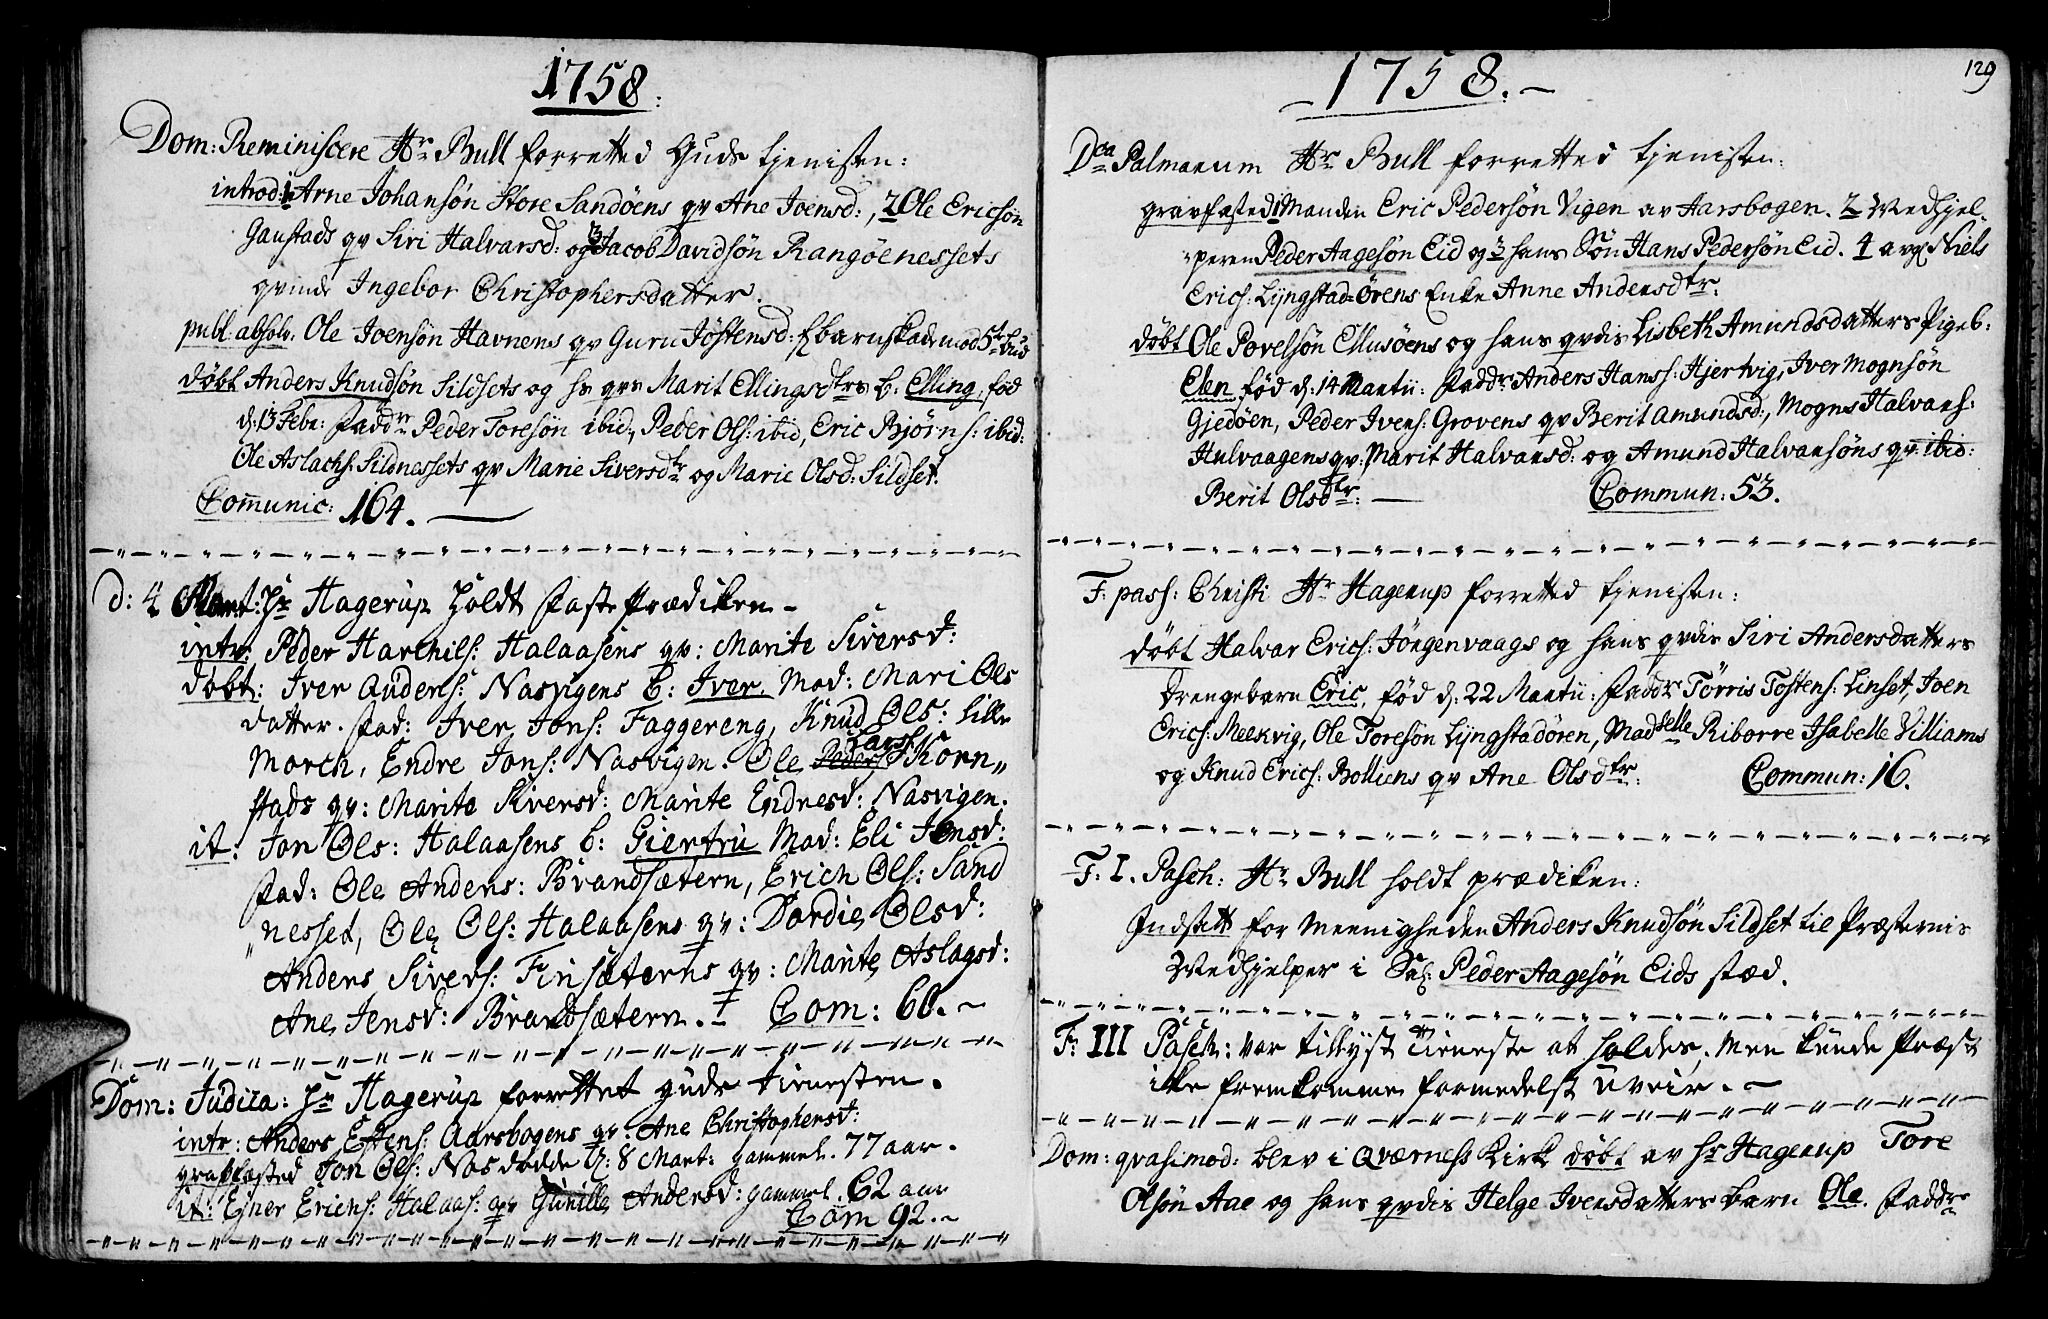 1758:
Dom: Reminiscere Hr Bull forretted Guds tjenisten:
introd: 1 Arne Johansøn Store Sandöens qv Ane Joensd:, 2 Ole Ericsøn
Gaustads qv Siri Halvarsd: og 3 Jacob Davidsøn Rangöenessets
qvinde Ingebor Christophersdatter.
publ. absolv. Ole Joensøn Havnens qv Guru Jöstensd: f barnskab mod 5te bud
döbt Anders Knudsøn Sildsets og hs qvs Marit Ellingsdtrs b: Elling, fød
d: 13 Febr: Faddr Peder Toresøn ibid:, Peder Ols: ibid, Eric Bjørns: ibid:
Ole Aslachs: Sildnessets qv Marie Siversdtr og Marie Olsd: Sildset.
Comunic: 164.
d: 4 Mart: Hr Hagerup Holdt Faste Prædiken –
intr: Peder Harchils: Halaasens qv: Marite Siversd:
døbt: Iver Anders: Nasvigens b: Iver. Mod: Mari Ols
datter. Fad: Iver Jons: Faggereng, Knud Ols: Lille
Morch, Endre Jons: Nasvigen. Ole Peders Lars: Korn„
stads qv: Marite Siversd: Marite Endresd: Nasvigen.
it: Jon Ols: Halaasens b: Giertru Mod: Eli Jonsd:
Fad: Ole Anders: Brandsætern, Erich Ols: Sand
„nesset, Ole Ols: Halaasens qv: Dordie Olsd:
Anders Sivers: Finsæterns qv: Marite Aslagsd:
Ane Jensd: Brandsætern. Com: 60. –
Dom: Judica: Hr Hagerup forrettet guds tienesten.
intr: Anders Estens: Aarsbogens qv: Ane Christophersd:
grafkasted Jon Ols: Nas dødde d: 8 Mart: gammel. 77 aar.
it: Ejner Erichs: Halaas: qv Gunille Andersd: gammel. 62 aar
Com 92. –
129
1758. –
Dca Palmarum Hr Bull forretted tjenisten:
gravfæsted 1 Manden Eric Pedersøn Vigen av Aarsbogen. 2 Medhjel-
peren Peder Aagesøn Eid og 3 hans Søn Hans Pedersøn Eid. 4 avg: Niels
Erics: Lyngstad=Örens Enke Anne Andersdtr:
döbt Ole Povelsøn Ellusöens og hans qvdis Lisbeth Amundsdatters Pigeb:
Elen fød d: 14 Martii: Faddr: Anders Hanss: Hjertvig, Iver Mognsøn
Gjedöen, Peder Ivers: Grovens qv Berit Amundsd:, Mogns Halvars:
Hulvaagens qv: Marit Halvarsd: og Amund Halvarsøns qv: ibid:
Berit Olsdtr: — Commun: 53.
F: pass: Christi Hr Hagerup forretted tjenisten:
döbt Halvar Erics: Jörgenvaags og hans qvdis Siri Andersdatters
Drengebarn Eric, fød d: 22 Martii: Faddr Törris Tostens: Linset, Joen
Erics: Meekvig, Ole Toresøn Lyngstadören, Madselle Riborre Isabelle Villiams
og Knud Erics: Bolliens qv Ane Olsdtr: Commun: 16.
F: I. Pasch: Hr Bull holdt prædiken:
Indsatt for Meenigheden Anders Knudsøn Sildset til Præsternis
Medhjelper i Sal: Peder Aagesøn Eids stæd.
Fr: III Pasch: var tillyst Tieneste at holdes, men kunde Præst
ikke fremkomme formedelst uveir. –
Dom: qvasimod: blev i Qværness Kirk döbt av Hr Hagerup Tore
Olsøn Aae og hans qvdis Helge Iversdatters barn Ole. Faddr